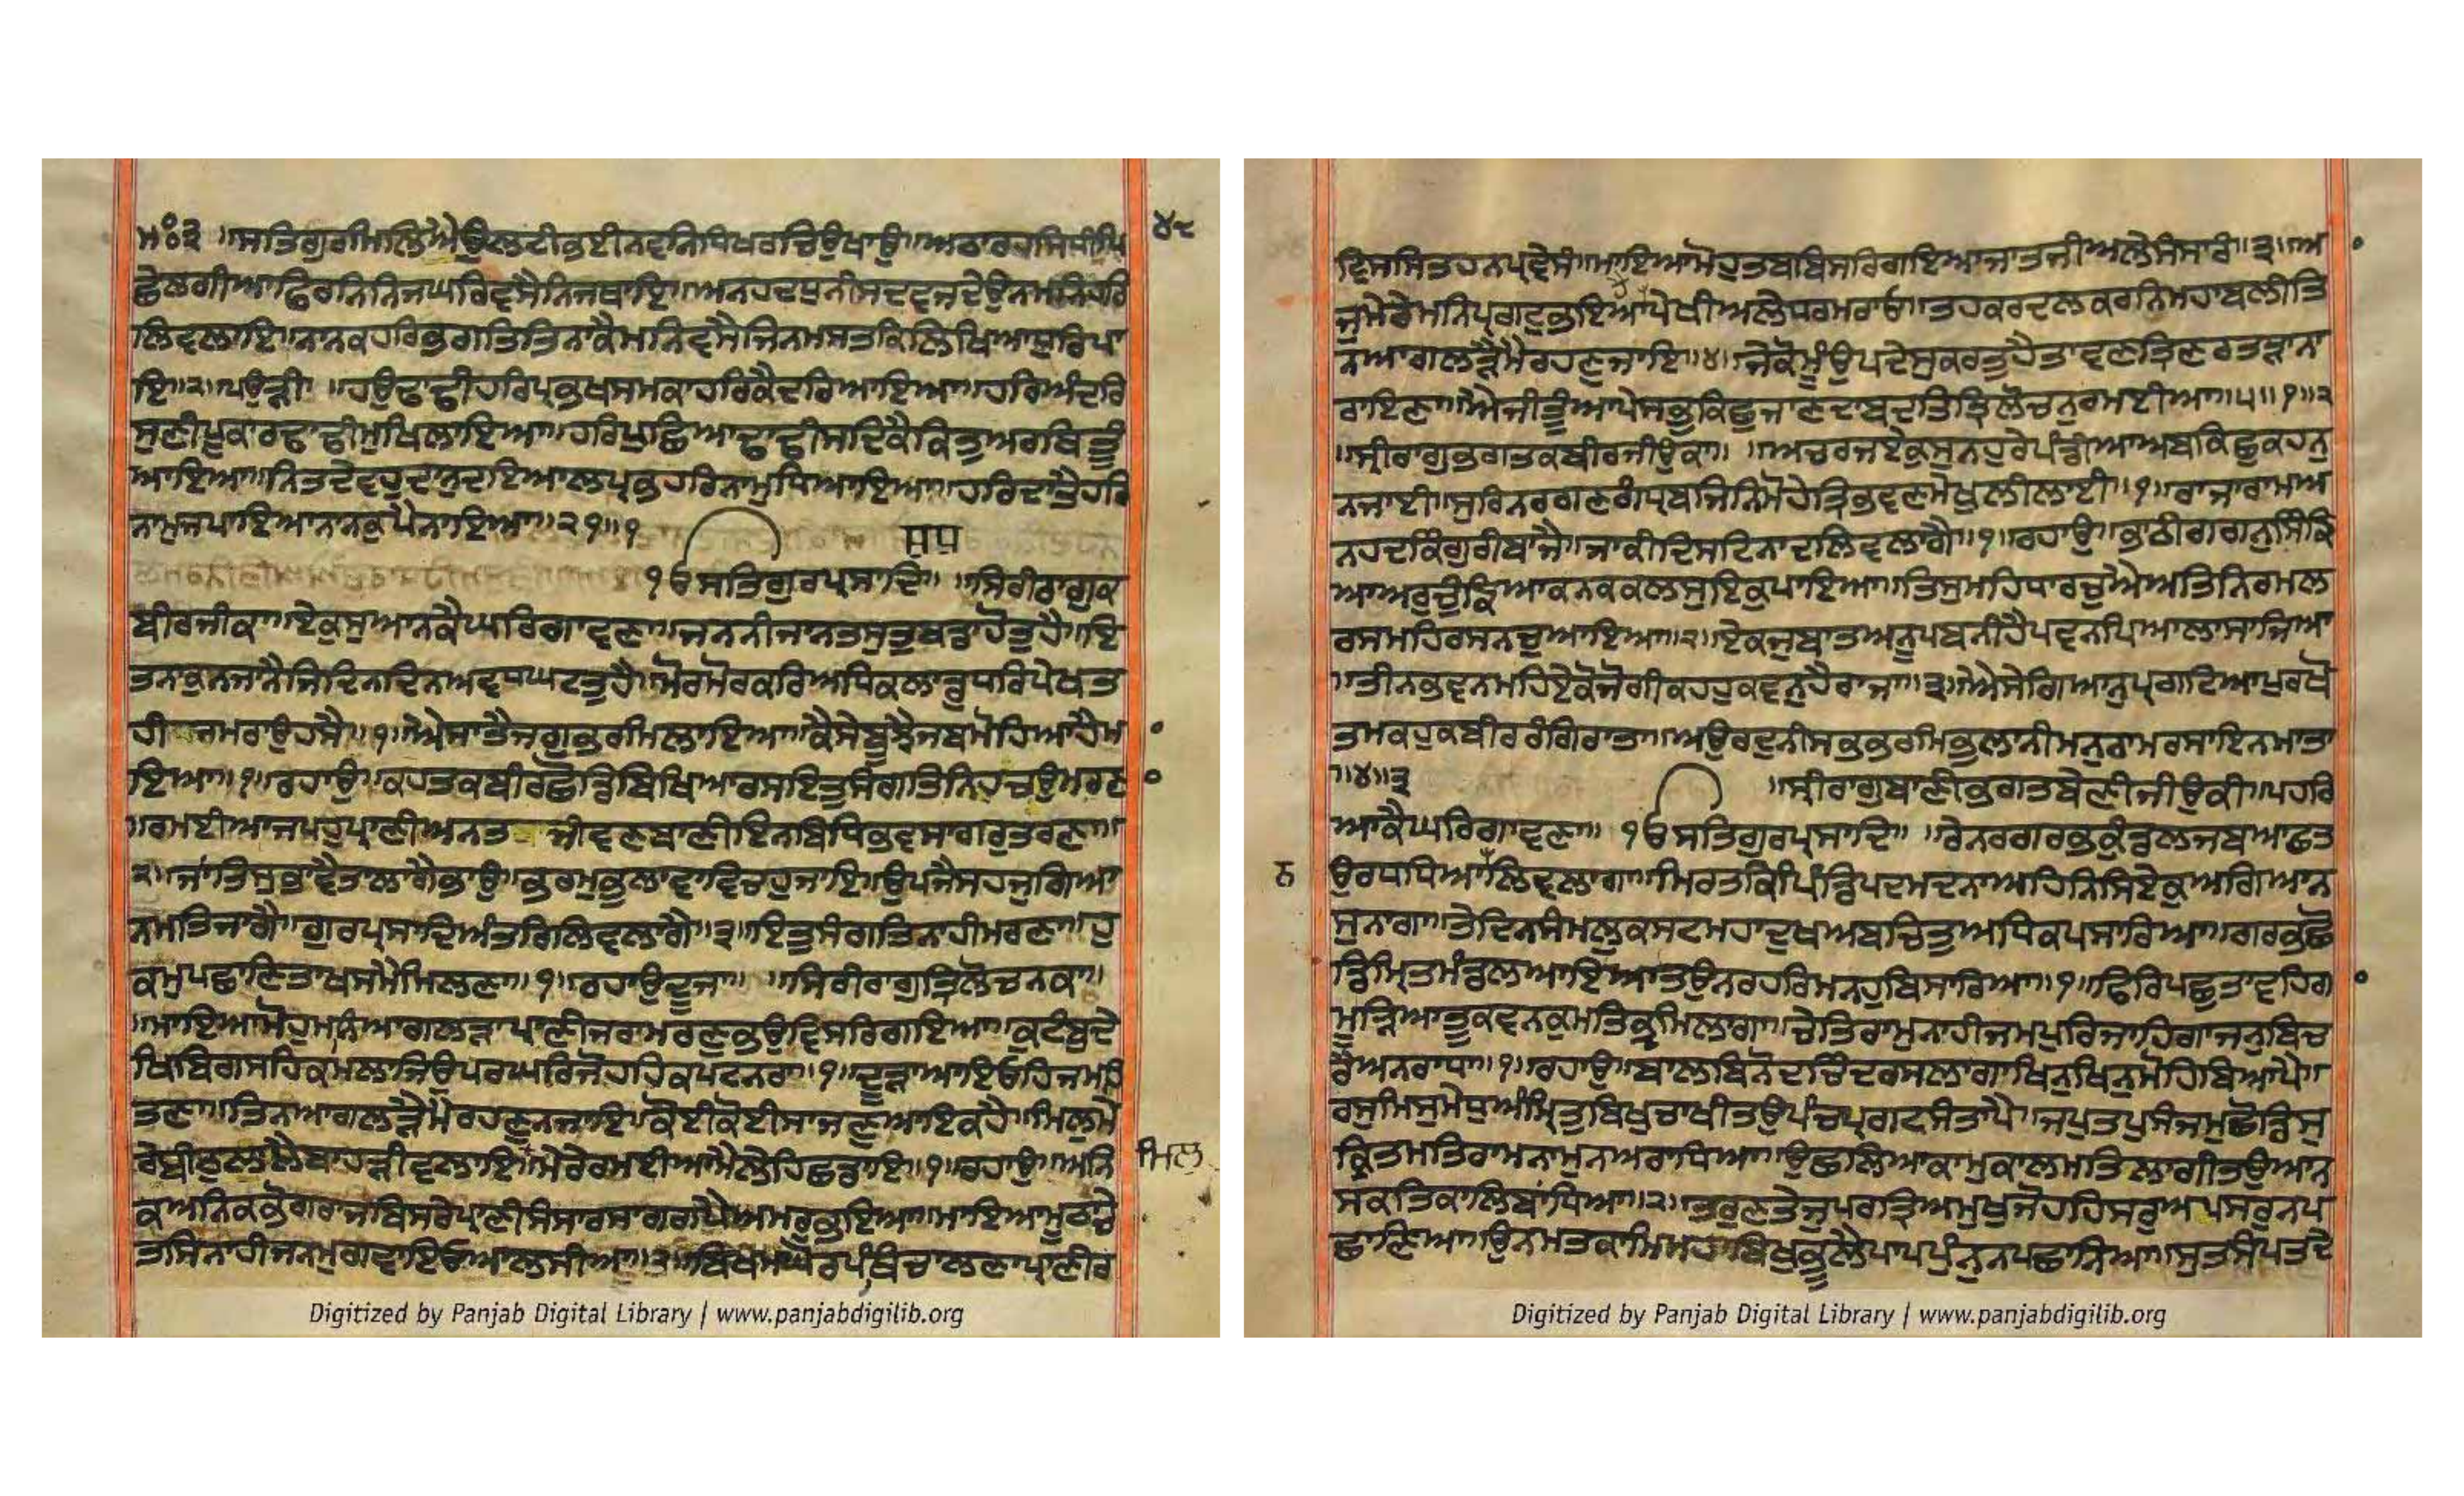 ਮਃ੩ ॥ਸਤਿਗੁਰਿਮਿਲਿਐਉਲਟੀਭਈਨਵਨਿਧਿਖਰਚਿਉਖਾਉ॥ਅਠਾਰਹਸਿਧੀਪਿ
੪੮
ਛੈਲਗੀਆਫਿਰਨਿਨਿਜਘਰਿਵਸੈਨਿਜਥਾਇ॥ਅਨਹਦਧੁਨੀਸਦਵਜਦੇਉਨਮਨਿਹਰਿ
ਲਿਵਲਾਇ॥ਨਾਨਕਹਰਿਭਗਤਿਤਿਨਾਕੈਮਨਿਵਸੈਜਿਨਮਸਤਕਿਲਿਖਿਆਧੁਰਿਪਾ
ਇ॥੨॥ਪਉੜੀ ॥ਹਉਢਾਢੀਹਰਿਪ੍ਰਭਖਸਮਕਾਹਰਿਕੈਦਰਿਆਇਆ॥ਹਰਿਅੰਦਰਿ
ਸੁਣੀਪੂਕਾਰਢਾਢੀਮੁਖਿਲਾਇਆ॥ਹਰਿਪੁਛਿਆਢਾਢੀਸਦਿਕੈਕਿਤੁਅਰਥਿਤੂੰ
ਆਇਆ॥ਨਿਤਦੇਵਹੁਦਾਨੁਦਇਆਲਪ੍ਰਭਹਰਿਨਾਮੁਧਿਆਇਆ॥ਹਰਿਦਾਤੈਹਰਿ
ਨਾਮੁਜਪਾਇਆਨਾਨਕੁਪੈਨਾਇਆ॥੨੧॥੧
੧ੳਸਤਿਗੁਰਪ੍ਰਸਾਦਿ॥ ॥ਸਿਰੀਰਾਗੁਕ
ਬੀਰਜੀਕਾ॥ਏਕੁਸੁਆਨਕੈਘਰਿਗਾਵਣਾ॥ਜਨਨੀਜਾਨਤਸੁਤੁਬਡਾਹੋਤੁਹੈ॥ਇ
ਤਨਾਕੁਨਜਾਨੈਜਿਦਿਨਦਿਨਅਵਧਘਟਤੁਹੈ॥ਮੋਰਮੋਰਕਰਿਅਧਿਕਲਾਡੂਧਰਿਪੇਖਤ
ਹੀ ਜਮਰਾਉਹਸੈ॥੧॥ਐਸਾਤੈਜਗੁਭਰਮਿਲਾਇਆ॥ਕੈਸੇਬੂਝੈਜਬਮੋਹਿਆਹੈਮਾ
ਇਆ॥੧॥ਰਹਾਉ॥ਕਹਤਕਬੀਰਛੋਡਿਬਿਖਿਆਰਸਇਤੁਸੰਗਤਿਨਿਹਚਉਮਰਣਾ
॥ਰਮਈਆਜਪਹੁਪ੍ਰਾਣੀਅਨਤ ਜੀਵਣਬਾਣੀਇਨਬਿਧਿਭਵਸਾਗਰੁਤਰਣਾ॥
੨॥ਜਾਂਤਿਸੁਭਾਵੈਤਾਲਾਗੈਭਾਉ॥ਭਰਮੁਭੁਲਾਵਾਵਿਚਹੁਜਾਇ॥ਉਪਜੈਸਹਜੁਗਿਆ
ਨਮਤਿਜਾਗੈ॥ਗੁਰਪ੍ਰਸਾਦਿਅੰਤਰਿਲਿਵਲਾਗੈ॥੩॥ਇਤੁਸੰਗਤਿਨਾਹੀਮਰਣਾ॥ਹੁ
ਕਮੁਪਛਾਣਿਤਾਖਸਮੈਮਿਲਣਾ॥੧॥ਰਹਾਉਦੂਜਾ॥ ॥ਸਿਰੀਰਾਗੁਤ੍ਰਿਲੋਚਨਕਾ॥
॥ਮਾਇਆਮੋਹੁਮਨਿਆਗਲੜਾਪ੍ਰਾਣੀਜਰਾਮਰਣੁਭਉਵਿਸਰਿਗਇਆ॥ਕੁਟੰਬੁਦੇ
ਖਿਬਿਗਸਹਿਕਮਲਾਜਿਉਪਰਘਰਿਜੋਹਹਿਕਪਟਨਰਾ॥੧॥ਦੂੜਾਆਇਓਹਿਜਮਹਿ
ਤਣਾ॥ਤਿਨਆਗਲੜੈਮੈਰਹਣੁਨਜਾਇ॥ਕੋਈਕੋਈਸਾਜਣੁਆਇਕਹੈ॥ਮਿਲੁਮੇ
ਰੇਬੀਠੁਲਾਲੈਬਾਹੜੀਵਲਾਇ॥ਮੇਰੇਰਮਈਆਮੈਲੇਹਿਛਡਾਇ॥੧॥ਰਹਾਉ॥ਅਨਿ
ਮਿਲ
ਕਅਨਿਕਭੋਗਰਾਜਬਿਸਰੇਪ੍ਰਾਣੀਸੰਸਾਰਸਾਗਰਪੈਅਮਰੁਭਇਆ॥ਮਾਇਆਮੂਠਾਚੇ
ਤਸਿਨਾਹੀਜਨਮੁਗਵਾਇਓਆਲਸੀਆ॥੨॥ਬਿਖਮਘੋਰਪੰਥਿਚਾਲਣਾਪ੍ਰਾਣੀਰ
ਵਿਸਸਿਤਹਨਪ੍ਰਵੇਸੰ॥ਮਾਇਆਮੋਹੁਤਬਬਿਸਰਿਗਇਆਜਾਤਜੀਅਲੇਸੰਸਾਰੰ॥੩॥ਆ
ਜੁਮੇਰੈਮਨਿਪ੍ਰਗਟੁਭਇਆਪੇਖੀਅਲੇਧਰਮਰਾਓ॥ਤਹਕਰਦਲਕਰਨਿਮਹਾਬਲੀਤਿ
ਨਆਗਲੜੈਮੈਰਹਣੁਜਾਇ॥੪॥ਜੇਕੋਮੂੰਉਪਦੇਸੁਕਰਤੁਹੈਤਾਵਣਤ੍ਰਿਣਰਤੜਾਨਾ
ਰਾਇਣਾ॥ਐਜੀਤੂੰਆਪੇਸਭਕਿਛੁਜਾਣਦਾਬਦਤਿਤ੍ਰਿਲੋਚਨੁਰਮਈਆ॥੫॥੧॥੨
॥ਸ੍ਰੀਰਾਗੁਭਗਤਕਬੀਰਜੀਉਕਾ॥ ॥ਅਚਰਜਏਕੁਸੁਨਹੁਰੇਪੰਡੀਆਅਬਕਿਛੁਕਹਨੁ
ਨਜਾਈ॥ਸੁਰਿਨਰਗਣਗੰਧ੍ਰਬਜਿਨਿਮੋਹੇਤ੍ਰਿਭਵਣਮੇਖੁਲੀਲਾਈ॥੧॥ਰਾਜਾਰਾਮਅ
ਨਹਦਕਿੰਗੁਰੀਬਾਜੈ॥ਜਾਕੀਦਿਸਟਿਨਾਦਲਿਵਲਾਗੈ॥੧॥ਰਹਾਉ॥ਭਾਠੀਗਗਨੁਸਿੰਙਿ
ਆਅਰੁਚੁੰਙਿਆਕਨਕਕਲਸੁਇਕੁਪਾਇਆ॥ਤਿਸੁਮਹਿਧਾਰਚੁਐਅਤਿਨਿਰਮਲ
ਰਸਮਹਿਰਸਨਚੁਆਇਆ॥੨॥ਏਕਜੁਬਾਤਅਨੂਪਬਨੀਹੈਪਵਨਪਿਆਲਾਸਾਜਿਆ
॥ਤੀਨਭਵਨਮਹਿਏਕੋਜੋਗੀਕਹਹੁਕਵਨੁਹੈਰਾਜਾ॥੩॥ਐਸੇਗਿਆਨੁਪ੍ਰਗਟਿਆਪੁਰਖੋ
ਤਮਕਹੁਕਬੀਰਰੰਗਿਰਾਤਾ॥ਅਉਰਦੁਨੀਸਭਭਰਮਿਭੁਲਾਨੀਮਨੁਰਾਮਰਸਾਇਨਮਾਤਾ
॥੪॥੩ ॥ਸ੍ਰੀਰਾਗੁਬਾਣੀਭਗਤਬੇਣੀਜੀਉਕੀ॥ਪਹਰਿ
ਆਕੈਘਰਿਗਾਵਣਾ॥ ੧ੳਸਤਿਗੁਰਪ੍ਰਸਾਦਿ॥ ॥ਰੇਨਰਗਰਭਕੁੰਡਲਜਬਆਛਤ
ਠ
ਉਰਧਧਿਆਲਿਵਲਾਗਾ॥ਮਿਰਤਕਿਪਿੰਡਿਪਦਮਦਨਾਅਹਿਨਿਸਿਏਕੁਅਗਿਆਨ
ਸੁਨਾਗਾ॥ਤੇਦਿਨਸੰਮਲੁਕਸਟਮਹਾਦੁਖਅਬਚਿਤੁਅਧਿਕਪਸਾਰਿਆ॥ਗਰਭਛੋ
ਡਿਮ੍ਰਿਤਮੰਡਲਆਇਆਤਉਨਰਹਰਿਮਨਹੁਬਿਸਾਰਿਆ॥੧॥ਫਿਰਿਪਛੁਤਾਵਹਿਗਾ
ਮੂੜਿਆਤੂਕਵਨਕੁਮਤਿਭ੍ਰਮਿਲਾਗਾ॥ਚੇਤਿਰਾਮੁਨਾਹੀਜਮਪੁਰਿਜਾਹਿਗਾਜਨੁਬਿਚ
ਰੈਅਨਰਾਧਾ॥੧॥ਰਹਾਉ॥ਬਾਲਬਿਨੋਦਚਿੰਦਰਸਲਾਗਾਖਿਨੁਖਿਨੁਮੋਹਿਬਿਆਪੈ॥
ਰਸੁਮਿਸੁਮੇਧੁਅੰਮ੍ਰਿਤੁਬਿਖੁਚਾਖੀਤਉਪੰਚਪ੍ਰਗਟਸੰਤਾਪੈ॥ਜਪੁਤਪੁਸੰਜਮੁਛੋਡਿਸੁ
ਕ੍ਰਿਤਮਤਿਰਾਮਨਾਮੁਨਅਰਾਧਿਆ॥ਉਛਲਿਆਕਾਮੁਕਾਲਮਤਿਲਾਗੀਤਉਆਨਿ
ਸਕਤਿਕਾਲਿਬਾਂਧਿਆ॥੨॥ਤਰੁਣਤੇਜੁਪਰਤ੍ਰਿਅਮੁਖੁਜੋਹਹਿਸਰੁਅਪਸਰੁਨਪ
ਛਾਣਿਆ॥ਉਨਮਤਕਾਮਿਮਹਾਬਿਖੁਭੂਲੈਪਾਪਪੁੰਨੁਨਪਛਾਨਿਆ॥ਸੁਤਸੰਪਤਦੇ
Digitized by Panjab Digital Library | www.panjabdigilib.org
Digitized by Panjab Digital Library | www.panjabdigilib.org